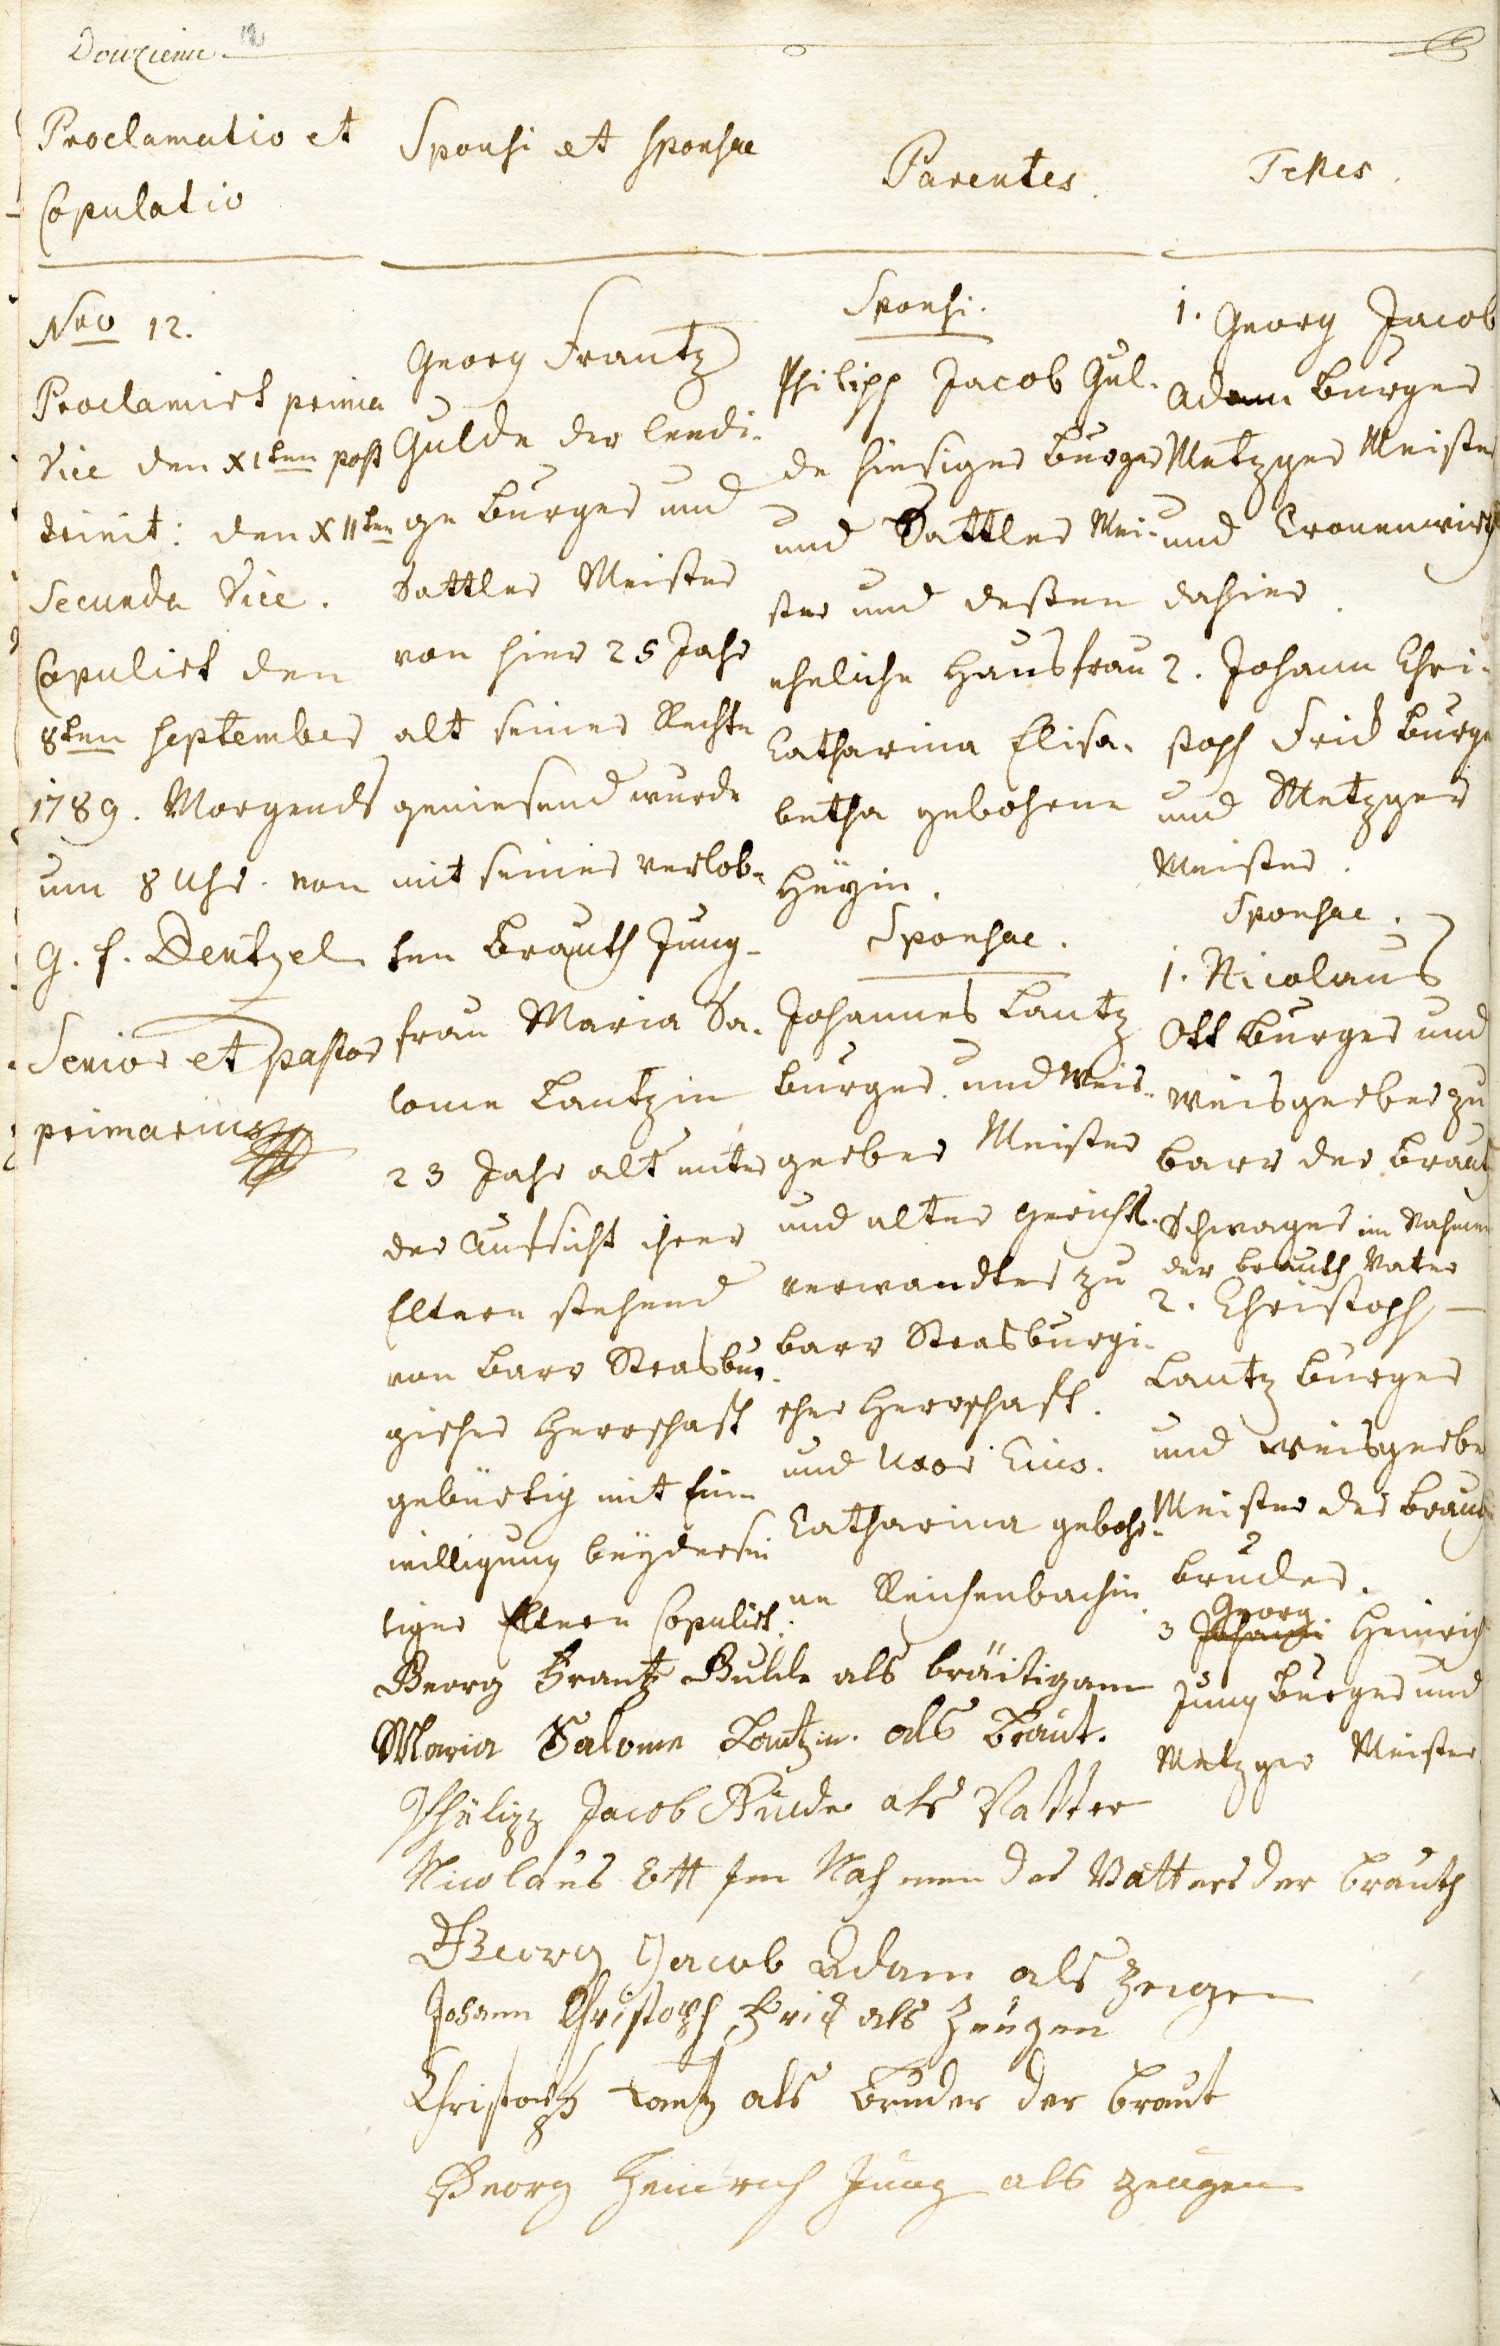 Douzieme 12
Proclamatio et
Copulatio
Nro 12.
Proclamirt prima
Vice den XIten post
trinit: den XIIten
Secunda Vice.
Copulirt den
8ten September
1789. Morgends
um 8 Uhr. von
G. f. Dentzel
Senior et pastor
primarius
Sponsi et Sponsae
Georg Frantz
Gulde der leedi-
ge Burger und
Sattler Meister
von hier 25 Jahr
alt seiner Rechte
geniesend wurde
mit seiner verlob-
ten Brauth Jung-
frau Maria Sa-
lome Lantzin
23 Jahr alt unter
der Aufsicht ihrer
Eltern stehend
von Barr Strasbur-
gischer Herrschaft
gebürtig mit Ein-
willigung beydersei
tiger Eltern Copulirt.
Parentes.
Sponsi.
Philipp Jacob Gul-
de hiesiger Burger
und Sattler Mei-
ster und dessen
eheliche Hausfrau
Catharina Elisa-
betha gebohrne
Heÿin.
Sponsae.
Johannes Lantz
Burger und Weis-
gerber Meister
und alter Gerichts-
verwandter zu
Barr Strasburgi-
scher Herrschaft.
und Uxor Eius.
Catharina gebohr-
ne Reichenbachin
Testes.
1. Georg Jacob
Adam Burger
Metzger Meister
und Cronenwirth
dahier.
2. Johann Chri-
stoph Frid Burger
und Metzger
Meister.
Sponsae.
1. Nicolaus
Ott Burger und
Weisgerber zu
Barr der Braut
Schwager im Nahmen
der Brauth Vater
2. Christoph
Lantz Burger
und Weisgerber
Meister der Brauth
Bruder.
Georg
3 Johann Heinrich
Jung Burger und
Metzger Meister
Georg Frantz Gulde als bräitigam
Maria Salome Lantzin. als Braut.
Philipp Jacob Gulde als Vatter
Nicolaus Ott Im Nahmen des Vatters der Brauth
Georg Jacob Adam als Zeigen
Johann Christoph Frid als Zeugen
Christoph Lantz als Bruder der Braut
Georg Heinrich Jung als zeugen